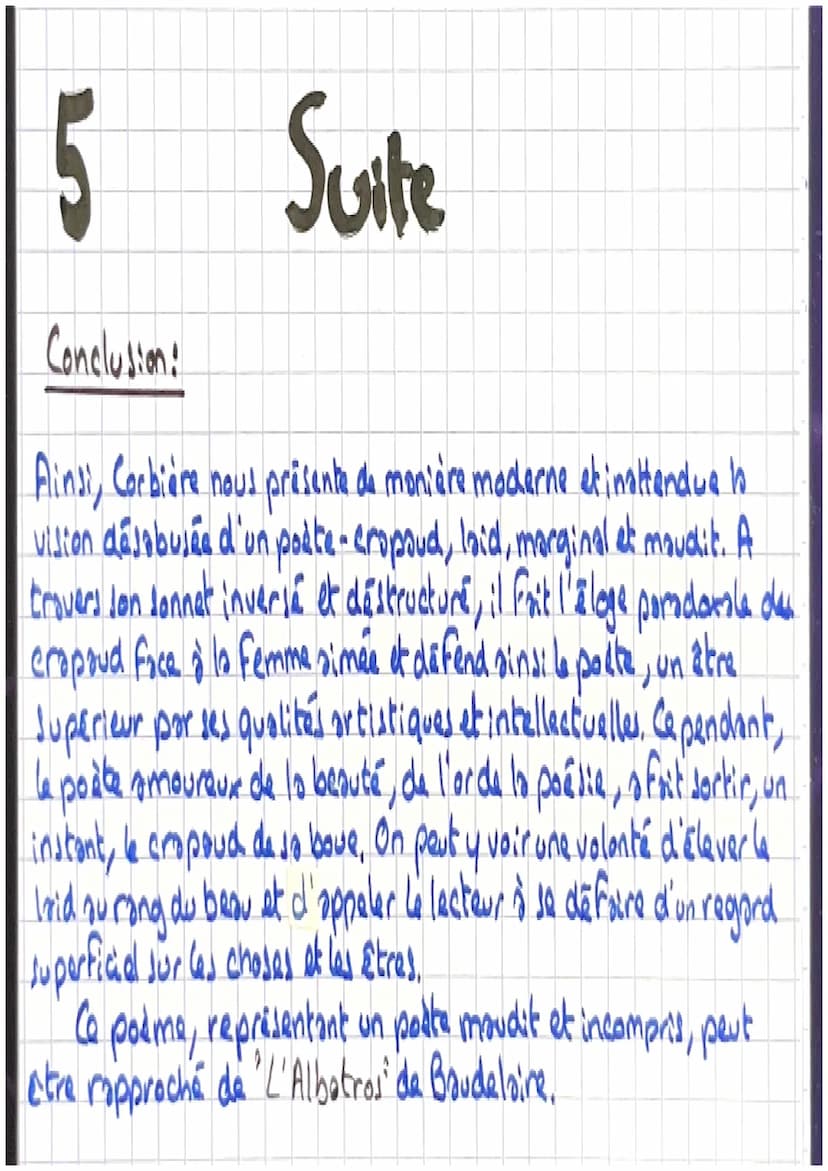 5 Suite
Conclusion:
Ainsi, Corbière nous présente de manière moderne et inattendue la
vision désabusée d'un poète-crapaud, laid, marginal et maudit. A
travers son sonnet inversé et déstructuré, il fait l'éloge paradoxale du
crapaud face à la femme aimée et défend ainsi le poète, un être
supérieur par ses qualités artistiques et intellectuelles. Cependant,
le poète amoureux de la beauté, de l'or de la poésie, a fait sortir, un
instant, le crapaud de sa boue. On peut y voir une volonté d'élever le
laid au rang du beau et d'appeler le lecteur à se défaire d'un regard
superficiel sur les choses et les êtres.
Ce poème, représentant un poète maudit et incompris, peut
être rapproché de "L'Albatros" de Baudelaire.